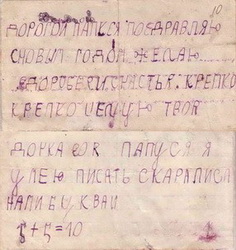 ДОРОГОЙ ПАПУСЯ ПОЗДРАВЛЯЮ
СНОВЫМ ГОДОМ ЖЕЛАЮ
ЗДОРОВЕ И СЧАСТЬЯ. КРЕПКО
КРЕПКО ЦЕЛУЮ ТВОЯ
ДОЧКА ПАПУСЯ Я
УМЕЮ ПИСАТЬ
БУКВАИ
5+5=10